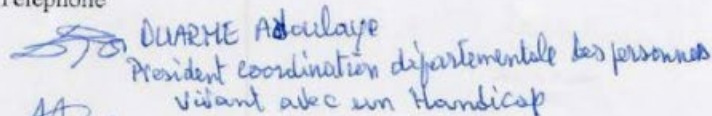 Téléphone
DUARME Abdoulaye
Président coordination départementale des personnes
vivant avec un Handicap